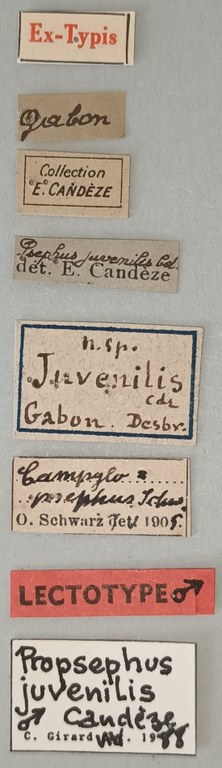 Ex-Typis
Gabon
Collection
E. CANDÈZE
Psephus juvenilis Cd.
dét. E. Candèze
n. sp.
Juvenilis
cdz
Gabon. Desbr.
Campylo =
psephus Schw.
O. Schwarz det. 1905.
LECTOTYPE ♂
Propsephus
juvenilis
♂ Candèze
C. Girard vid. 1988